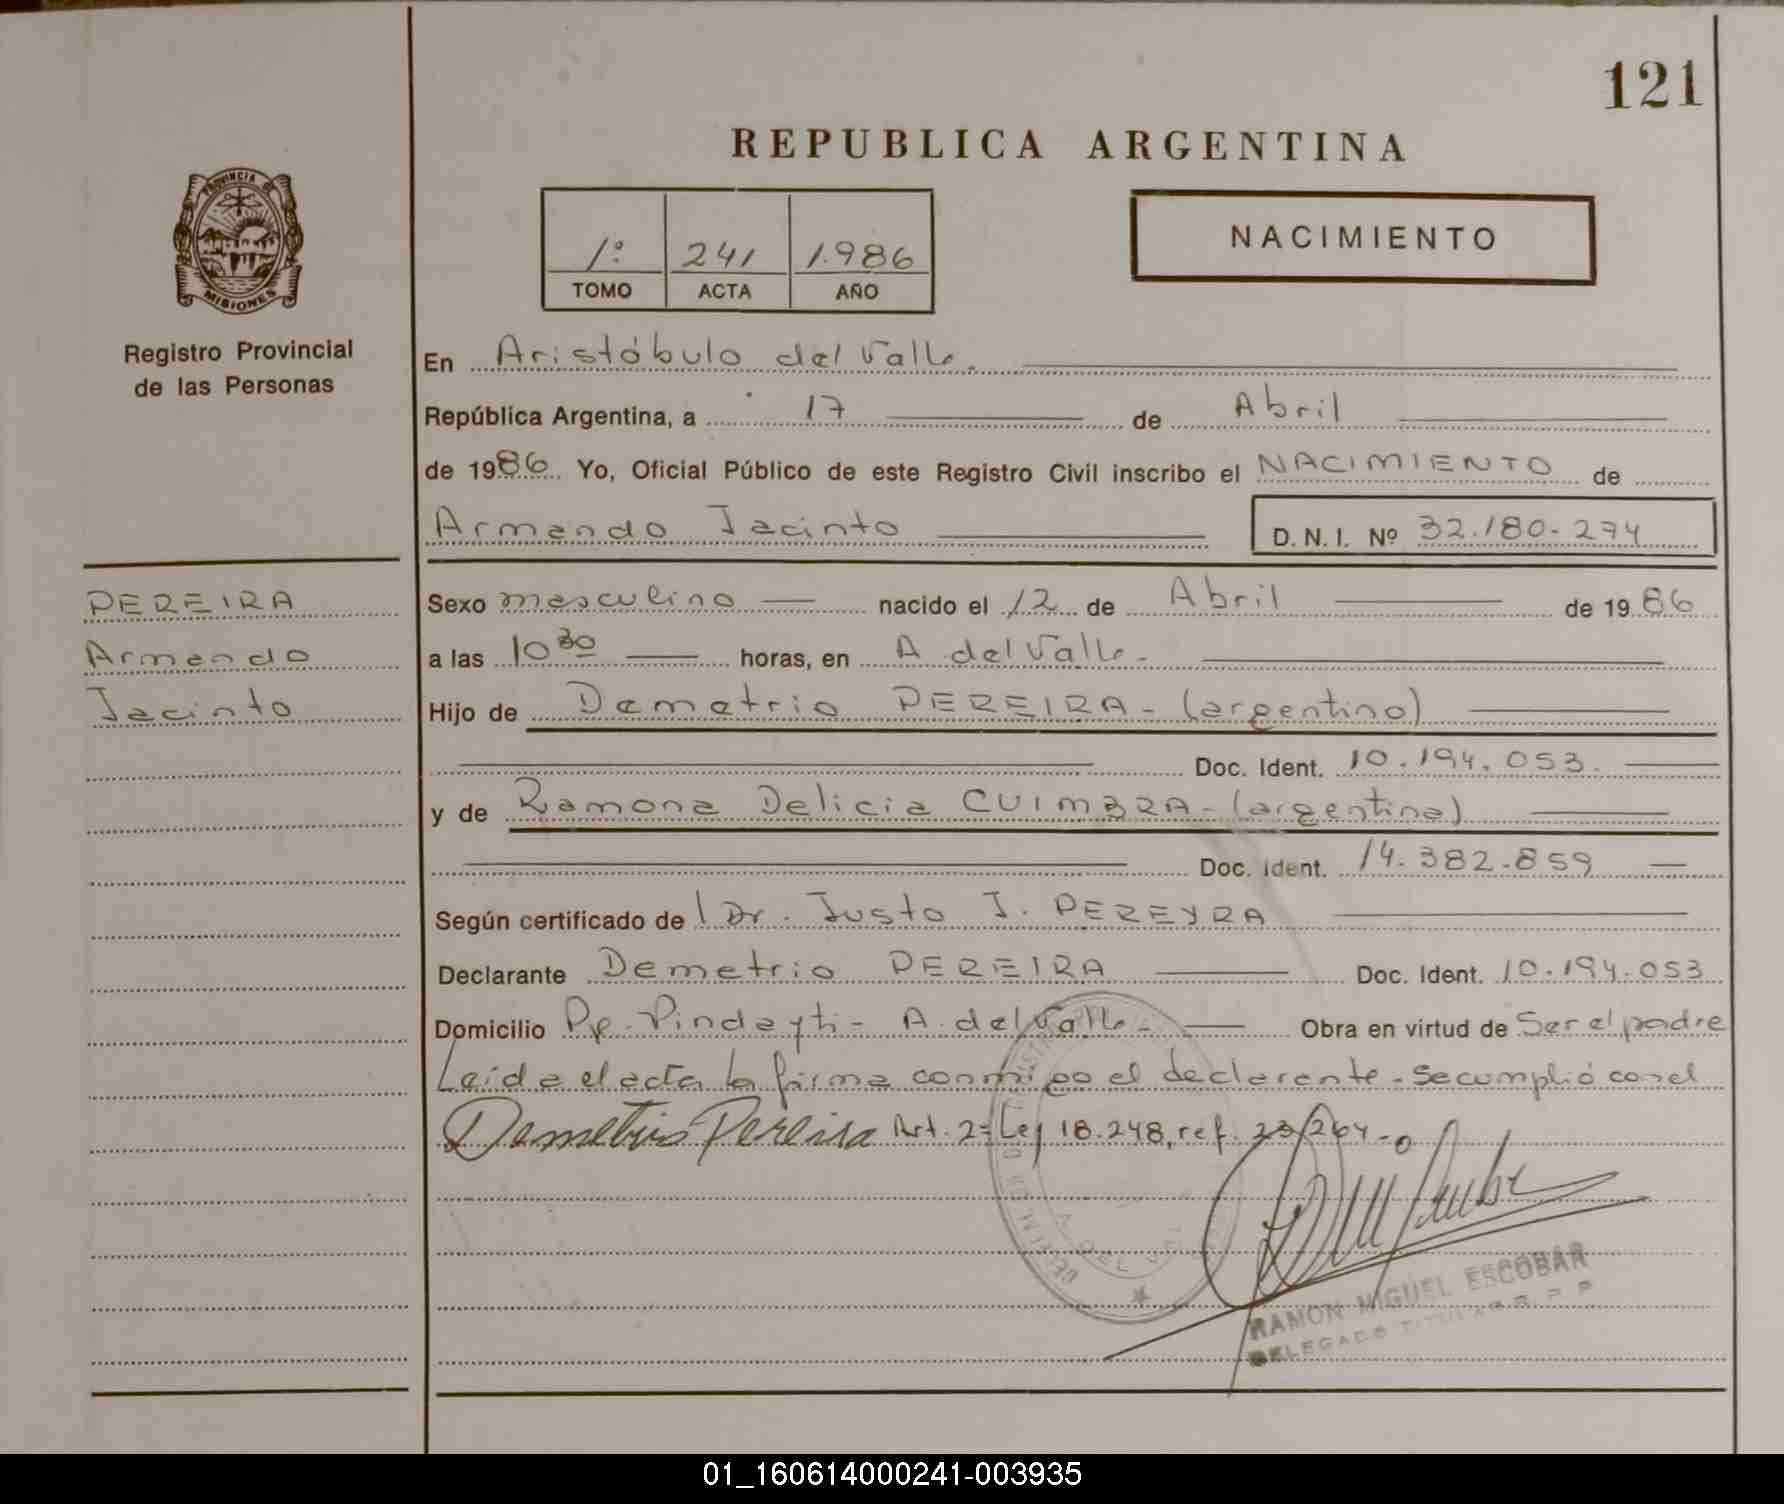 121
REPUBLICA ARGENTINA
PROVINCIA DE
MISIONES
Registro Provincial
de las Personas
1º 241 1.986
TOMO ACTA AÑO
NACIMIENTO
En Aristóbulo del Valle.
República Argentina, a 17 de Abril
de 1986. Yo, Oficial Público de este Registro Civil inscribo el NACIMIENTO de
Armando Jacinto D.N.I. Nº 32.180.274
PEREIRA
Armando
Jacinto
Sexo masculino nacido el 12 de Abril de 1986
a las 10 30 horas, en A del Valle-
Hijo de Demetrio PEREIRA - (argentino)
Doc. Ident. 10.194.053.
y de Ramona Delicia CUIMBRA - (argentina)
Doc. Ident. 14.382.859
Según certificado de Dr. Justo J. PEREYRA
Declarante Demetrio PEREIRA Doc. Ident. 10.194.053
Domicilio Pje. Pindayti - A. del Valle - Obra en virtud de Ser el padre
Leida el acta la firma conmigo el declarante - Se cumplió con el
Demetrio Pereira Art. 2º Ley 18.248, ref. 23/264-
RAMON MIGUEL ESCOBAR
DELEGADO TITULAR R.P.P
01_160614000241-003935